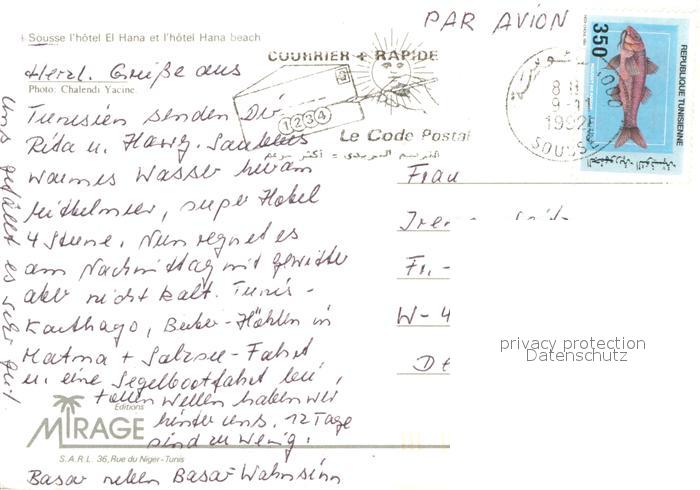 Sousse l'hôtel El Hana et l'hôtel Hana beach
PAR AVION
Herzl. Grüße aus
Photo: Chalendi Yacine.
Tunesien senden Dir
Rita u. Hawg. Sauberes
warmes Wasser hier am
Mittelmeer, super Hotel
4 Sterne. Nun regnet es
am Nachmittag mit Gewitter
aber nicht kalt. Tunis -
Karthago, Berber-Höhlen in
Matma + Salzsee-Fahrt
u. eine Segelbootfahrt bei
tollen Wellen haben wir
hinter uns. 12 Tage
sind zu wenig.
Basar neben Basar Wahnsinn
uns gefällt es sehr gut.
Editions
MIRAGE
S.A.R.L. 36, Rue du Niger-Tunis
COURRIER + RAPIDE
1 2 3 4
Le Code Postal
الترقيم البريدي = أكثر سرعة
1992
SOUSSE
350
REPUBLIQUE TUNISIENNE
الجمهورية التونسية
Frau
W-4
privacy protection
Datenschutz